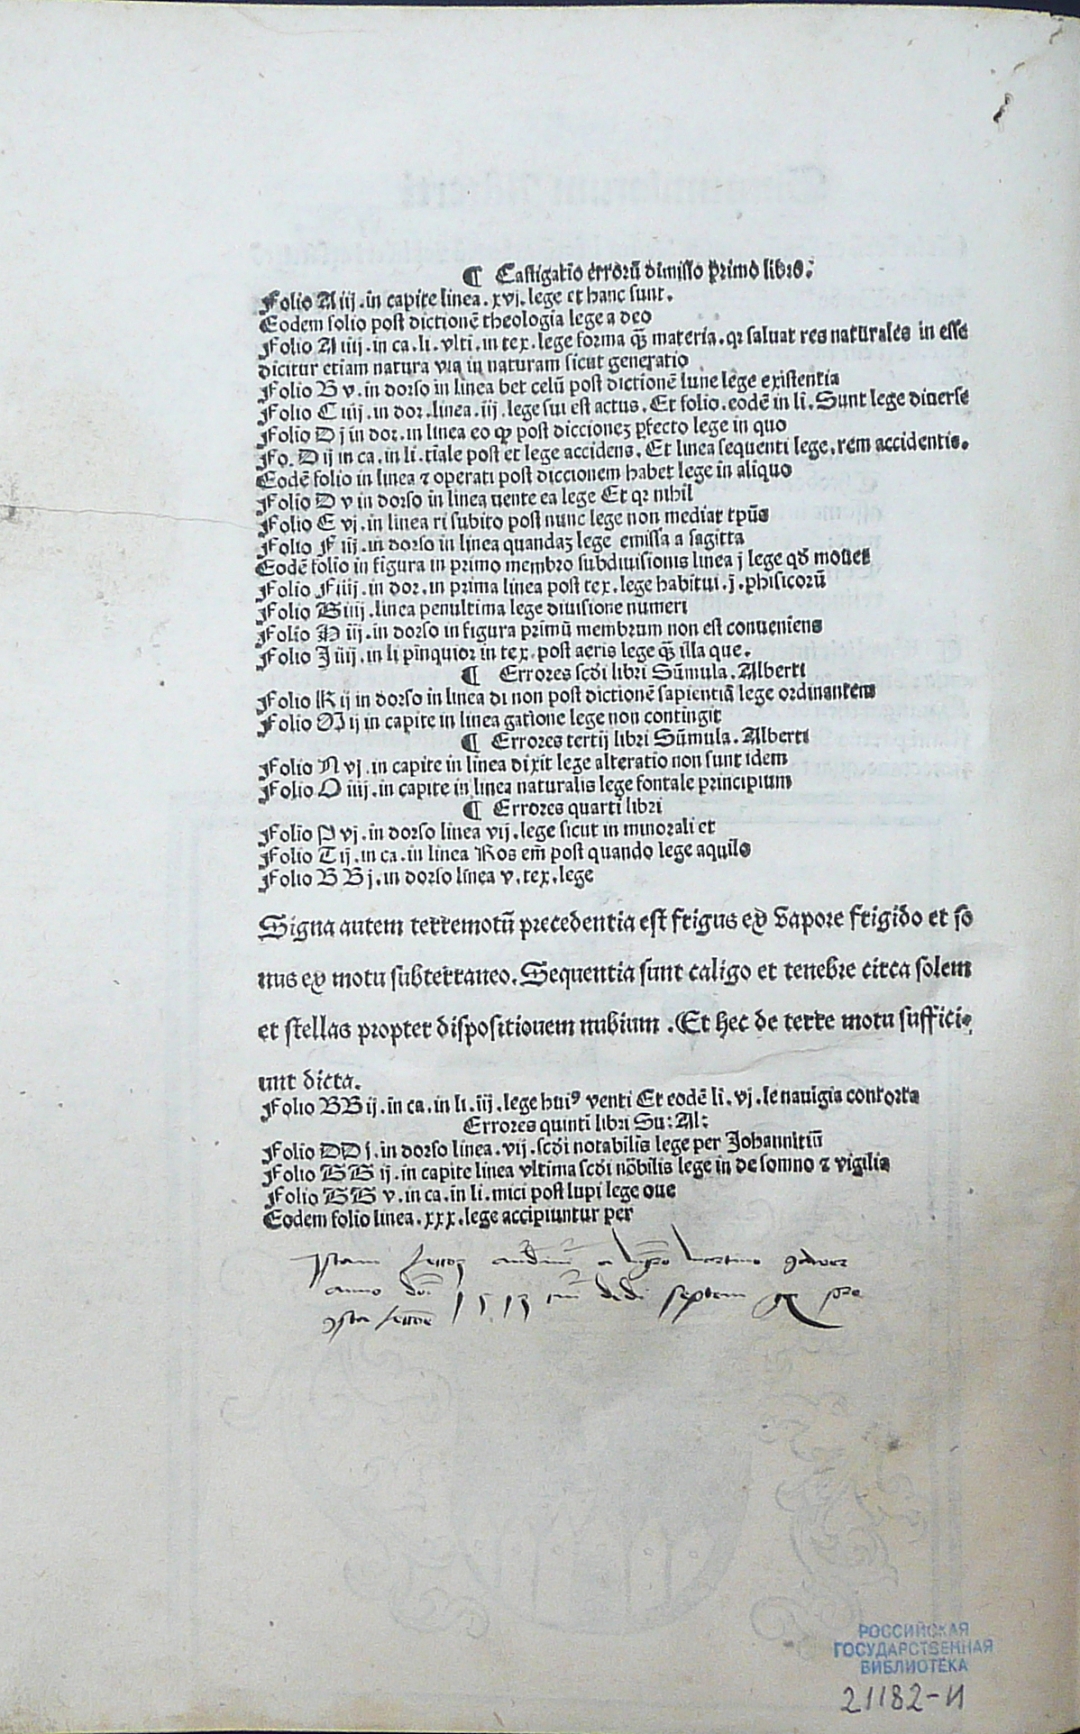 ¶ Castigatio erroꝝ dimisso primo libro:
Folio A iij. in capite linea. xvj. lege et hanc sunt.
Eodem folio post dictionē theologia lege a deo
Folio A iiij. in ca. li. vlti. in tex. lege forma qȝ materia. qꝛ saluat res naturales in esse
dicitur etiam natura via in naturam sicut generatio
Folio B v. in dorso in linea bet celū post dictionē lune lege existentia
Folio C iiij. in dor. linea. iij. lege sui est actus. Et folio. eodē in li. Sunt lege diuerse
Folio D j in dor. in linea eo qꝫ post diccioneȝ ꝑfecto lege in quo
Fo. D ij in ca. in li. tiale post et lege accidens. Et linea sequenti lege. rem accidentis.
Eodē folio in linea ⁊ operati post diccionem habet lege in aliquo
Folio D v in dorso in linea uente ea lege Et qꝛ nihil
Folio E vj. in linea ri subito post nunc lege non mediat tpūs
Folio F iij. in dorso in linea quandaȝ lege emissa a sagitta
Eodē folio in figura in primo membro subdiuisionis linea j lege qđ mouet
Folio F iiij. in dor. in prima linea post tex. lege habitui. j. phisicorū
Folio G iiij. linea penultima lege diuisione numeri
Folio H iij. in dorso in figura primū membrum non est conueniens
Folio J iiij. in li pinquior in tex. post aeris lege qȝ illa que.
¶ Errores scđi libri Sūmula. Alberti
Folio K ij in dorso in linea di non post dictionē sapientiā lege ordinantem
Folio M ij in capite in linea gatione lege non contingit
¶ Errores tertij libri Sūmula. Alberti
Folio N vj. in capite in linea dixit lege alteratio non sunt idem
Folio O iiij. in capite in linea naturalis lege fontale principium
¶ Errores quarti libri
Folio P vj. in dorso linea vij. lege sicut in minorali et
Folio T ij. in ca. in linea Ros em̄ post quando lege aquilo
Folio B B j. in dorso linea v. tex. lege
Signa autem terremotū precedentia est frigus ex vapore frigido et so
nus ex motu subterraneo. Sequentia sunt caligo et tenebre circa solem
et stellas propter dispositionem nubium. Et hec de terre motu suffici⸗
unt dicta.
Folio BB ij. in ca. in li. iij. lege huiꝰ venti Et eodē li. vj. le nauigia contorta
Errores quinti libri Su: Al:
Folio DD j. in dorso linea. vij. scđi notabilis lege per Johannitiū
Folio GG ij. in capite linea vltima scđi nōbilis lege in de somno ⁊ vigilia
Folio GG v. in ca. in li. mici post lupi lege oue
Eodem folio linea. xxx. lege accipiuntur per
Istam a
anno 1513 dedi septem
ista
РОССИЙСКАЯ
ГОСУДАРСТВЕННАЯ
БИБЛИОТЕКА
21182-И